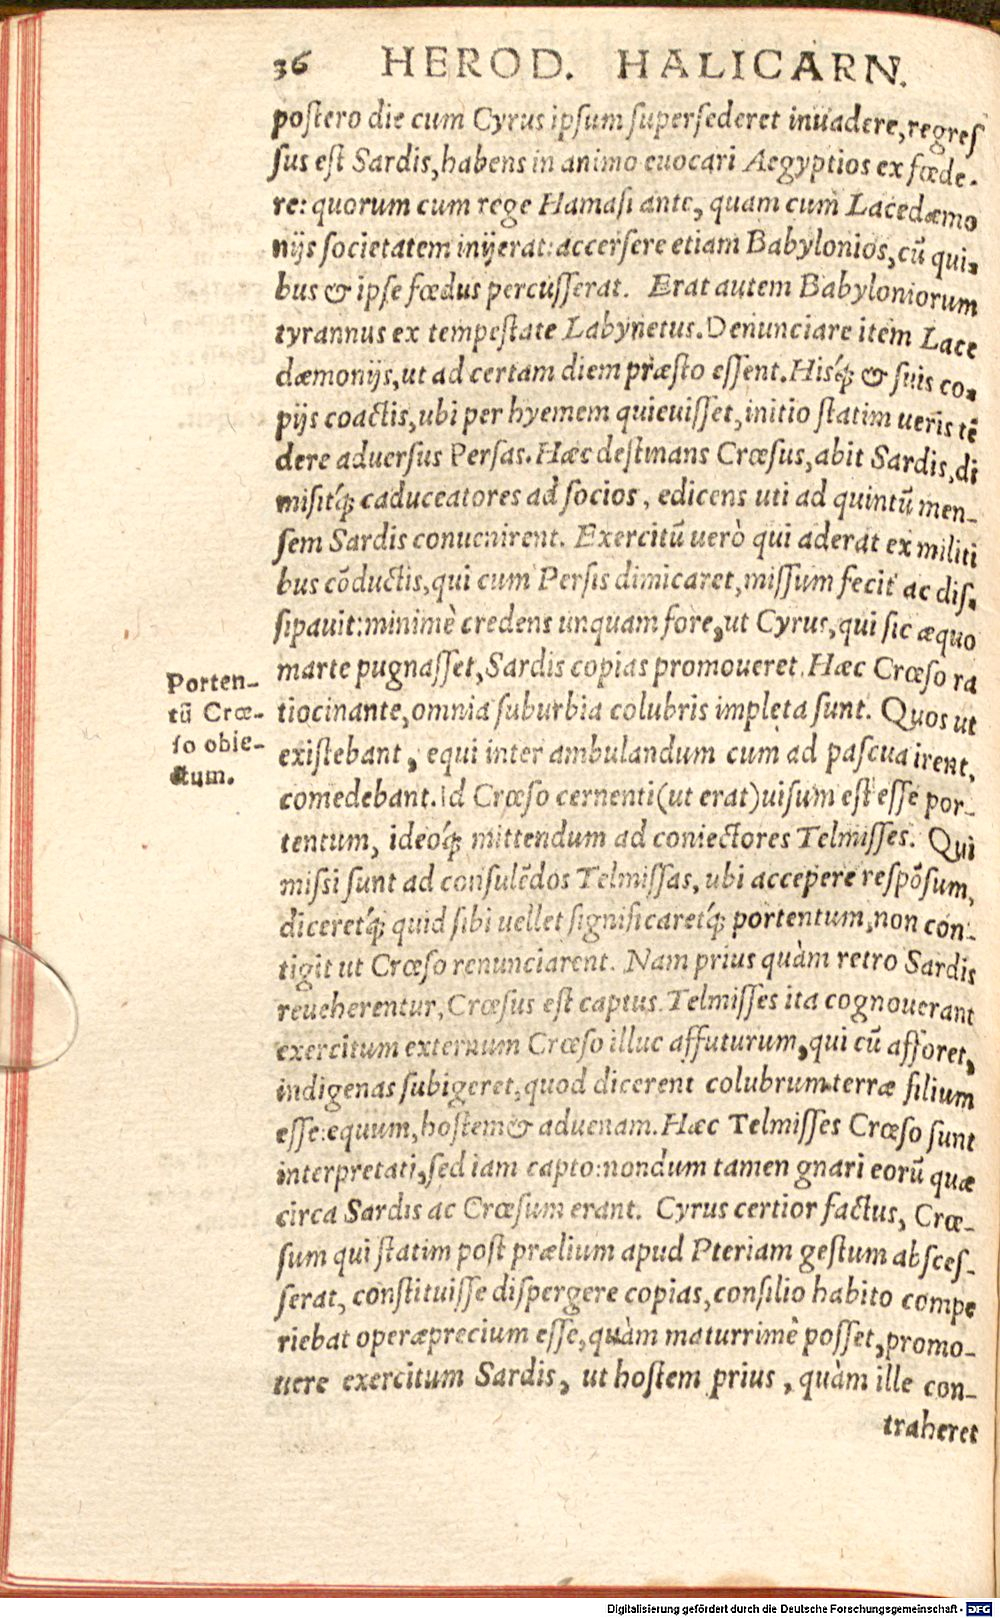 36 HEROD. HALICARN.
postero die cum Cyrus ipsum supersederet inuadere, regres
sus est Sardis, habens in animo euocari Aegyptios ex fœde-
re: quorum cum rege Hamasi ante, quam cum Lacedæmo
nijs societatem inijerat: accersere etiam Babylonios, cũ qui-
bus & ipse fœdus percusserat. Erat autem Babyloniorum
tyrannus ex tempestate Labynetus. Denunciare item Lace
dæmonijs, ut ad certam diem præsto essent. Hisq́; & suis co-
pijs coactis, ubi per hyemem quieuisset, initio statim ueris tẽ
dere aduersus Persas. Hæc destinans Crœsus, abit Sardis, di
misitq́; caduceatores ad socios, edicens uti ad quintũ men-
sem Sardis conuenirent. Exercitũ uerò qui aderat ex militi
bus cõductis, qui cum Persis dimicaret, missum fecit ac dis-
sipauit: minimè credens unquam fore, ut Cyrus, qui sic æquo
marte pugnasset, Sardis copias promoueret. Hæc Crœso ra
tiocinante, omnia suburbia colubris impleta sunt. Quos ut
existebant, equi inter ambulandum cum ad pascua irent,
comedebant. Id Crœso cernenti (ut erat) uisum est esse por-
tentum, ideoq́; mittendum ad coniectores Telmisses. Qui
missi sunt ad consulẽdos Telmissas, ubi accepere respõsum,
diceretq́; quid sibi uellet significaretq́; portentum, non con-
tigit ut Crœso renunciarent. Nam prius quàm retro Sardis
reueherentur, Crœsus est captus. Telmisses ita cognouerant
exercitum externum Crœso illuc affuturum, qui cũ afforet,
indigenas subigeret, quod dicerent colubrum terræ filium
esse: equum, hostem & aduenam. Hæc Telmisses Crœso sunt
interpretati, sed iam capto: nondum tamen gnari eorũ quæ
circa Sardis ac Crœsum erant. Cyrus certior factus, Crœ-
sum qui statim post prælium apud Pteriam gestum absces-
serat, constituisse dispergere copias, consilio habito compe
riebat operæprecium esse, quàm maturrimè posset, promo-
uere exercitum Sardis, ut hostem prius, quàm ille con-
traheret
Porten-
tũ Crœ-
so obie-
ctum.
Digitalisierung gefördert durch die Deutsche Forschungsgemeinschaft - DFG